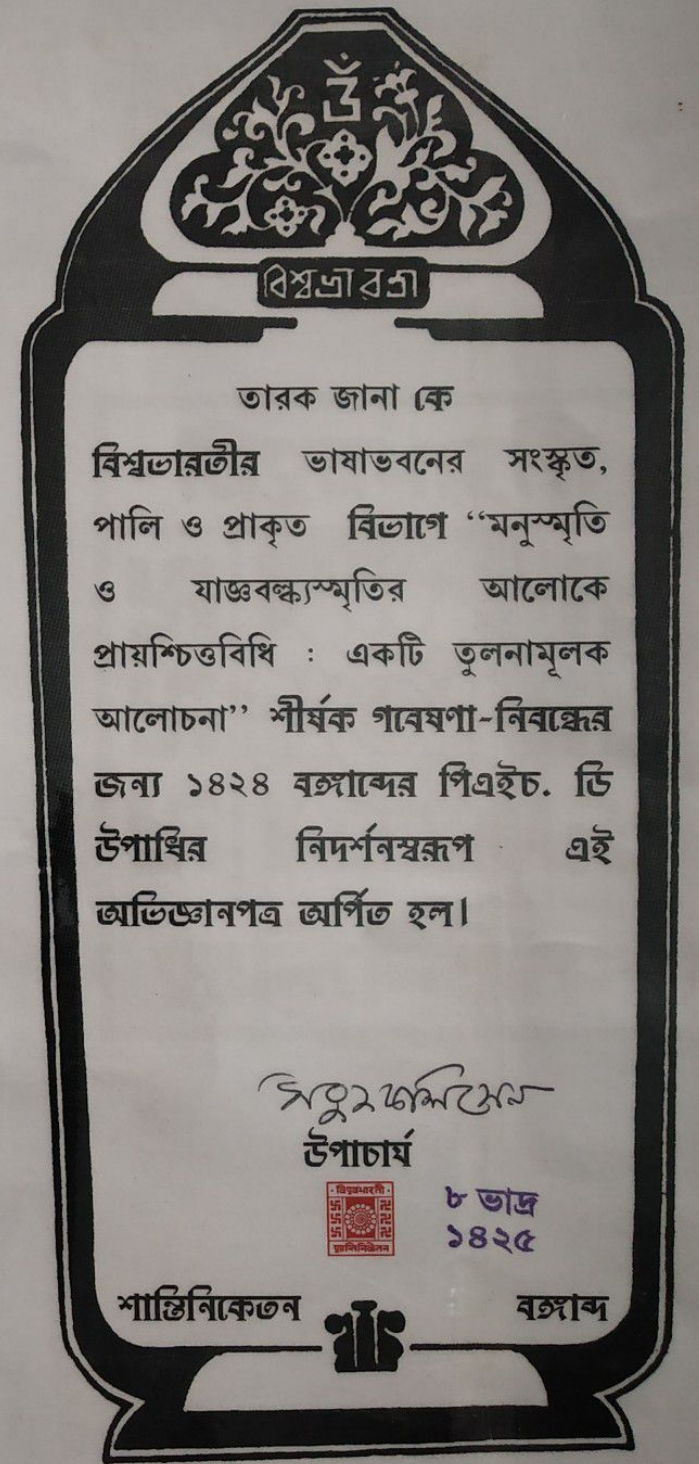 ওঁ
বিশ্বভারতী
তারক জানা কে
বিশ্বভারতীর ভাষাভবনের সংস্কৃত,
পালি ও প্রাকৃত বিভাগে “মনুস্মৃতি
ও যাজ্ঞবল্ক্যস্মৃতির আলোকে
প্রায়শ্চিত্তবিধি : একটি তুলনামূলক
আলোচনা” শীর্ষক গবেষণা-নিবন্ধের
জন্য ১৪২৪ বঙ্গাব্দের পিএইচ. ডি
উপাধির নিদর্শনস্বরূপ এই
অভিজ্ঞানপত্র অর্পিত হল।
উপাচার্য
৮ ভাদ্র
১৪২৫
শান্তিনিকেতন
বঙ্গাব্দ